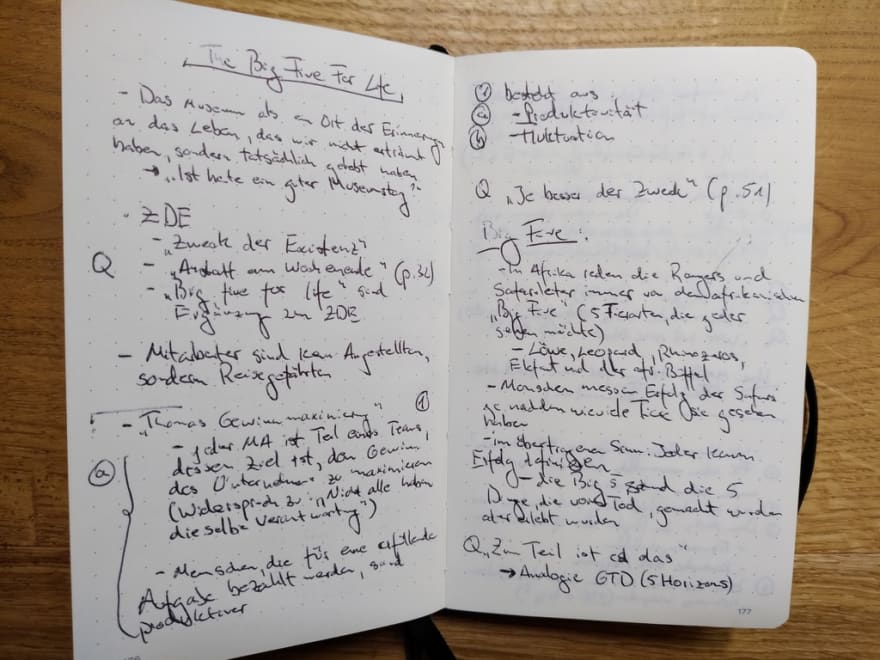 The Big Five For Life
- Das Museum als ein Ort der Erinnerung
an das Leben, das wir nicht erträumt
haben, sondern tatsächlich gelebt haben
→ „Ist heute ein guter Museumstag?"
· ZDE
- „Zweck der Existenz"
Q - „Anstatt am Wochenende" (p.32)
- „Big five for life" sind
Ergänzung zum ZDE
- Mitarbeiter sind kein Angestellten,
sondern Reisegefährten
- „Thomas Gewinnmaximierung" ①
- jeder MA ist Teil eines Teams,
ⓐ dessen Ziel ist, den Gewinn
des Unternehmens zu maximieren
(Widerspruch zu „Nicht alle haben
die selbe Verantwortung")
- Menschen, die für eine erfüllende
Aufgabe bezahlt werden, sind
produktiver
① besteht aus
ⓐ - Produktivität
ⓑ - Fluktuation
Q „Je besser der Zweck" (p.51)
Big Five:
- In Afrika reden die Rangers und
Safarileiter immer von den afrikanischen
„Big Five" (5 Tierarten, die jeder
sehen möchte)
- Löwe, Leopard, Rhinozeros,
Elefant und der afr. Büffel
- Menschen messen Erfolg der Safaris
je nachdem wieviele Tiere sie gesehen
haben
- im übertragenen Sinn: Jeder kann
Erfolg definieren
- die Big 5 sind die 5
Dinge, die vorm Tod, gemacht wurden
oder erlebt wurden
Q „Zum Teil ist es das"
→ Analogie GTD (5 Horizons)
177